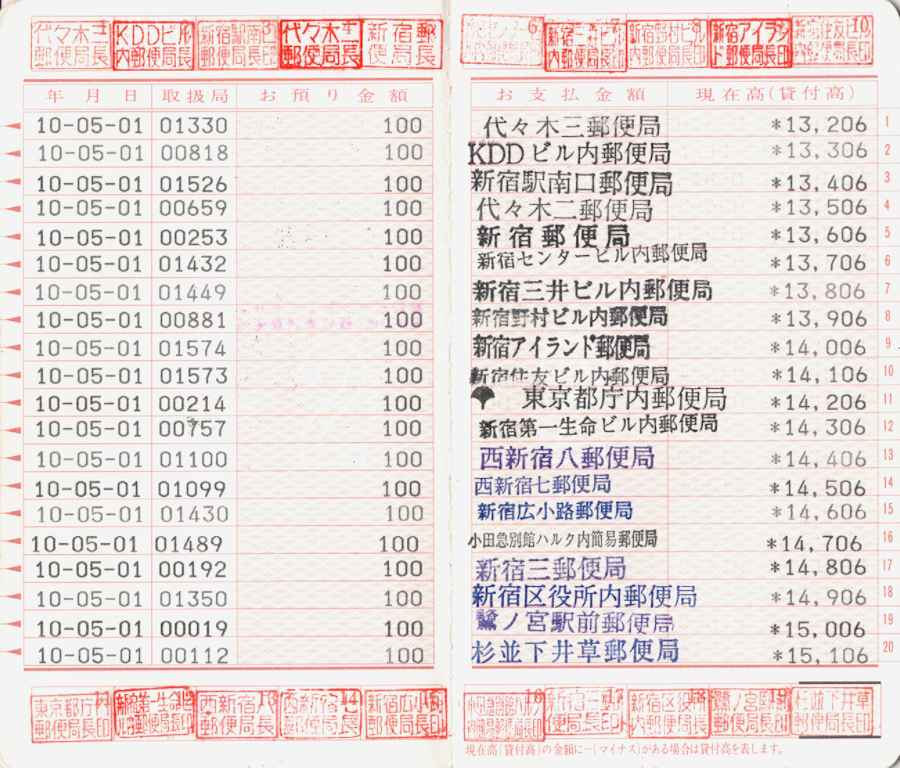 代々木三郵便局長 KDDビル内郵便局長 新宿駅南口郵便局長 代々木二郵便局長 新宿郵便局長 6 新宿三井ビル内郵便局長印 7 新宿野村ビル内郵便局長印 8 新宿アイランド郵便局長印 9 新宿住友ビル内郵便局長印 10
年月日 取扱局 お預り金額 お支払金額 現在高(貸付高)
10-05-01 01330 100 代々木三郵便局 *13,206 1
10-05-01 00818 100 KDDビル内郵便局 *13,306 2
10-05-01 01526 100 新宿駅南口郵便局 *13,406 3
10-05-01 00659 100 代々木二郵便局 *13,506 4
10-05-01 00253 100 新宿郵便局 *13,606 5
10-05-01 01432 100 新宿センタービル内郵便局 *13,706 6
10-05-01 01449 100 新宿三井ビル内郵便局 *13,806 7
10-05-01 00881 100 新宿野村ビル内郵便局 *13,906 8
10-05-01 01574 100 新宿アイランド郵便局 *14,006 9
10-05-01 01573 100 新宿住友ビル内郵便局 *14,106 10
10-05-01 00214 100 東京都庁内郵便局 *14,206 11
10-05-01 00757 100 新宿第一生命ビル内郵便局 *14,306 12
10-05-01 01100 100 西新宿八郵便局 *14,406 13
10-05-01 01099 100 西新宿七郵便局 *14,506 14
10-05-01 01430 100 新宿広小路郵便局 *14,606 15
10-05-01 01489 100 小田急別館ハルク内簡易郵便局 *14,706 16
10-05-01 00192 100 新宿三郵便局 *14,806 17
10-05-01 01350 100 新宿区役所内郵便局 *14,906 18
10-05-01 00019 100 鷺ノ宮駅前郵便局 *15,006 19
10-05-01 00112 100 杉並下井草郵便局 *15,106 20
東京都庁内郵便局長印 11 西新宿 郵便局長 13 西新宿 郵便局長印 14 新宿広小 郵便局長印 15 16 新宿三 郵便局長印 17 新宿区役 郵便局長印 18 鷺ノ宮駅前郵便局長印 19 杉並下井草郵便局長印
現在高(貸付高)の金額に-(マイナス)がある場合は貸付高を表します。